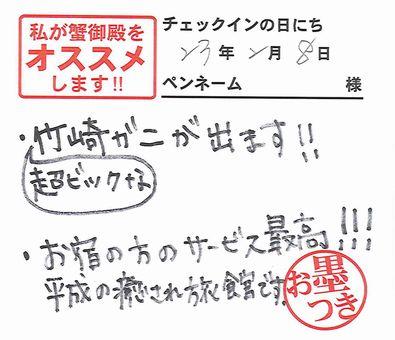 私が蟹御殿を
オススメ
します!!
チェックインの日にち
23年2月8日
ペンネーム 様
・竹崎ガニが出ます!!
超ビックな
・お宿の方のサービス最高!!!
平成の癒され旅館です。
お墨つき